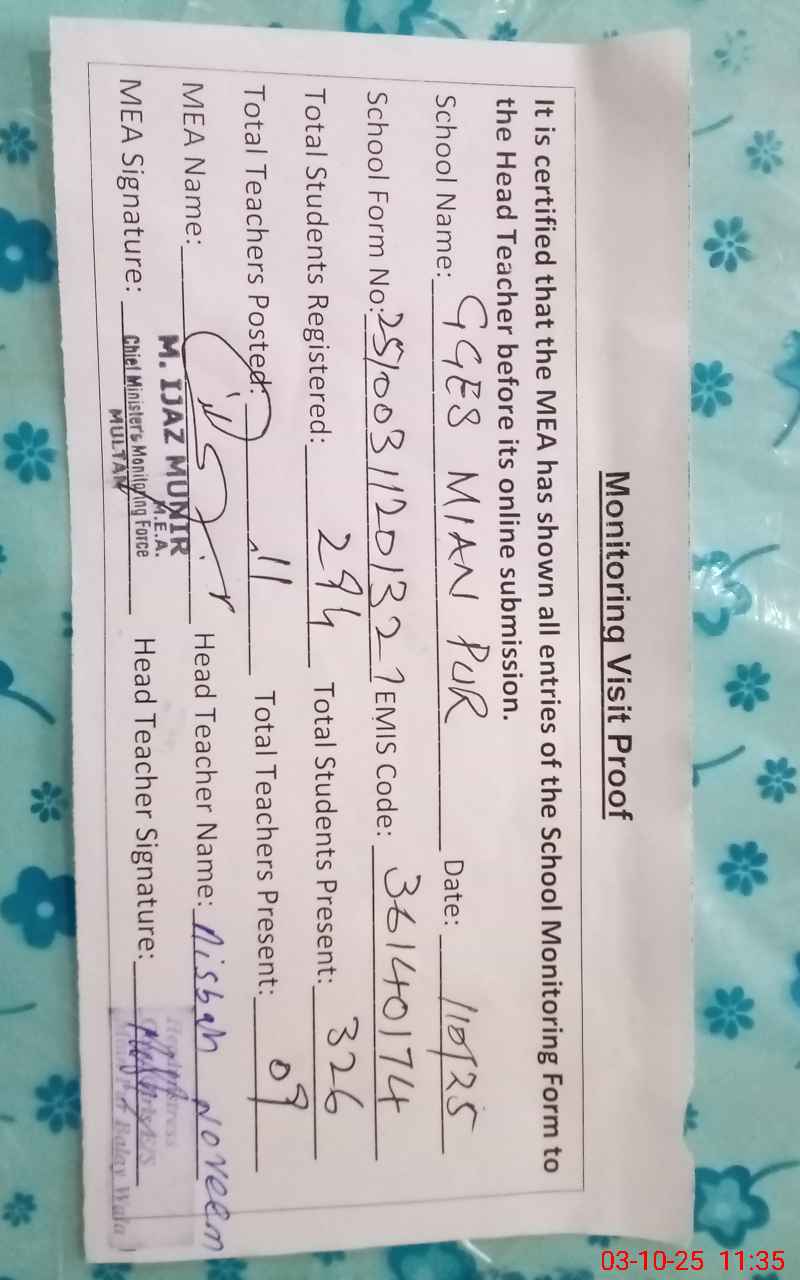 Monitoring Visit Proof
It is certified that the MEA has shown all entries of the School Monitoring Form to
the Head Teacher before its online submission.
School Name: GGES MIAN PUR Date: 1/10/25
School Form No: EMIS Code: 36140174
Total Students Registered: 294 Total Students Present: 326
Total Teachers Posted: 11 Total Teachers Present: 09
MEA Name: Head Teacher Name: Nisbah Noreem
M. IJAZ MUNIR
M.E.A.
MEA Signature: Chief Minister's Monitoring Force Head Teacher Signature:
MULTAN
03-10-25 11:35